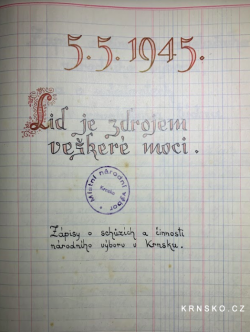 5.5.1945.
Lid je zdrojem
veškeré moci.
Místní národní výbor
Krnsko
Zápisy o schůzích a činnosti
národního výboru v Krnsku.
KRNSKO.CZ